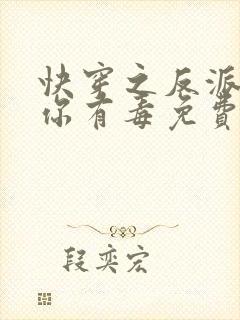 快穿之反派
你有毒免费
段奕宏